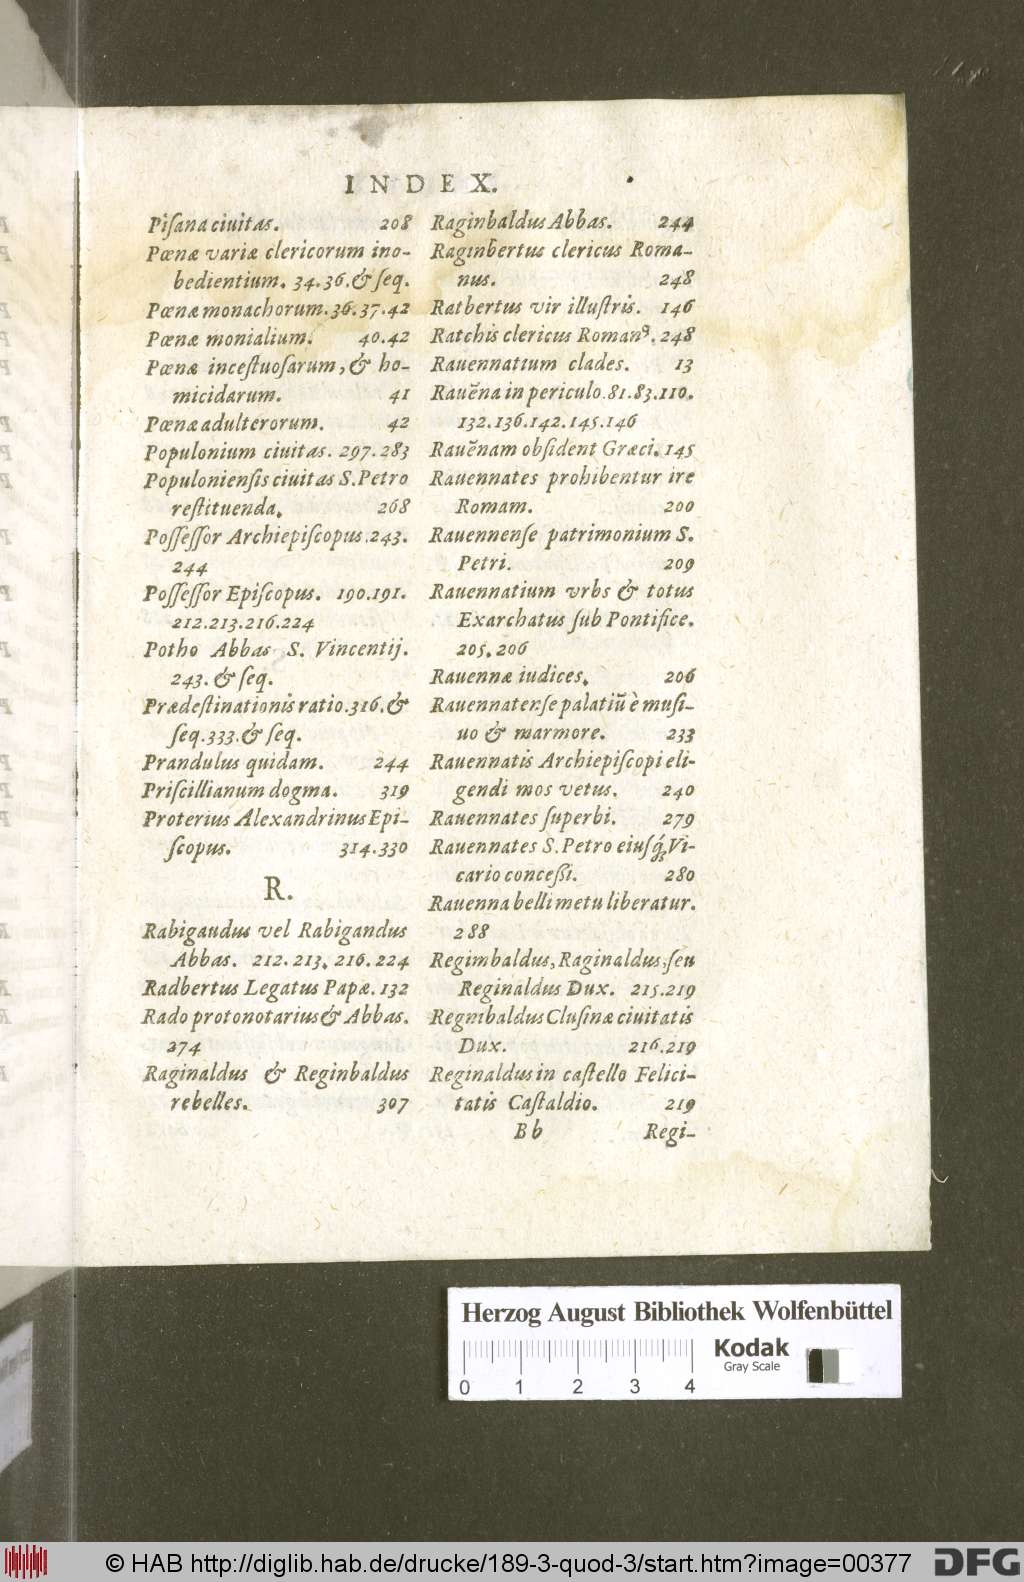 INDEX.
Piſana ciuitas. 208
Pœnæ variæ clericorum ino-
bedientium. 34.36.& ſeq.
Pœnæ monachorum.36.37.42
Pœnæ monialium. 40.42
Pœnæ inceſtuoſarum, & ho-
micidarum. 41
Pœnæ adulterorum. 42
Populonium ciuitas. 297.283
Populonienſis ciuitas S.Petro
reſtituenda. 268
Poſſeſſor Archiepiſcopus.243.
244
Poſſeſſor Epiſcopus. 190.191.
212.213.216.224
Potho Abbas S. Vincentij.
243.& ſeq.
Prædeſtinationis ratio.316.&
ſeq.333.& ſeq.
Prandulus quidam. 244
Priſcillianum dogma. 319
Proterius Alexandrinus Epi-
ſcopus. 314.330
R.
Rabigaudus vel Rabigandus
Abbas. 212.213.216.224
Radbertus Legatus Papæ.132
Rado protonotarius & Abbas.
274
Raginaldus & Reginbaldus
rebelles. 307
Raginbaldus Abbas. 244
Raginbertus clericus Roma-
nus. 248
Ratbertus vir illuſtris. 146
Ratchis clericus Romanꝰ.248
Rauennatium clades. 13
Rauēna in periculo.81.83.110.
132.136.142.145.146
Rauēnam obſident Græci.145
Rauennates prohibentur ire
Romam. 200
Rauennenſe patrimonium S.
Petri. 209
Rauennatium vrbs & totus
Exarchatus ſub Pontifice.
205.206
Rauennæ iudices. 206
Rauennatenſe palatiū è muſi-
uo & marmore. 233
Rauennatis Archiepiſcopi eli-
gendi mos vetus. 240
Rauennates ſuperbi. 279
Rauennates S.Petro eiuſq́; Vi-
cario conceſſi. 280
Rauenna belli metu liberatur.
288
Regimbaldus, Raginaldus, ſeu
Reginaldus Dux. 215.219
Regnibaldus Cluſinæ ciuitatis
Dux. 216.219
Reginaldus in caſtello Felici-
tatis Caſtaldio. 219
Bb Regi-
Herzog August Bibliothek Wolfenbüttel
Kodak
Gray Scale
0 1 2 3 4
© HAB http://diglib.hab.de/drucke/189-3-quod-3/start.htm?image=00377
DFG